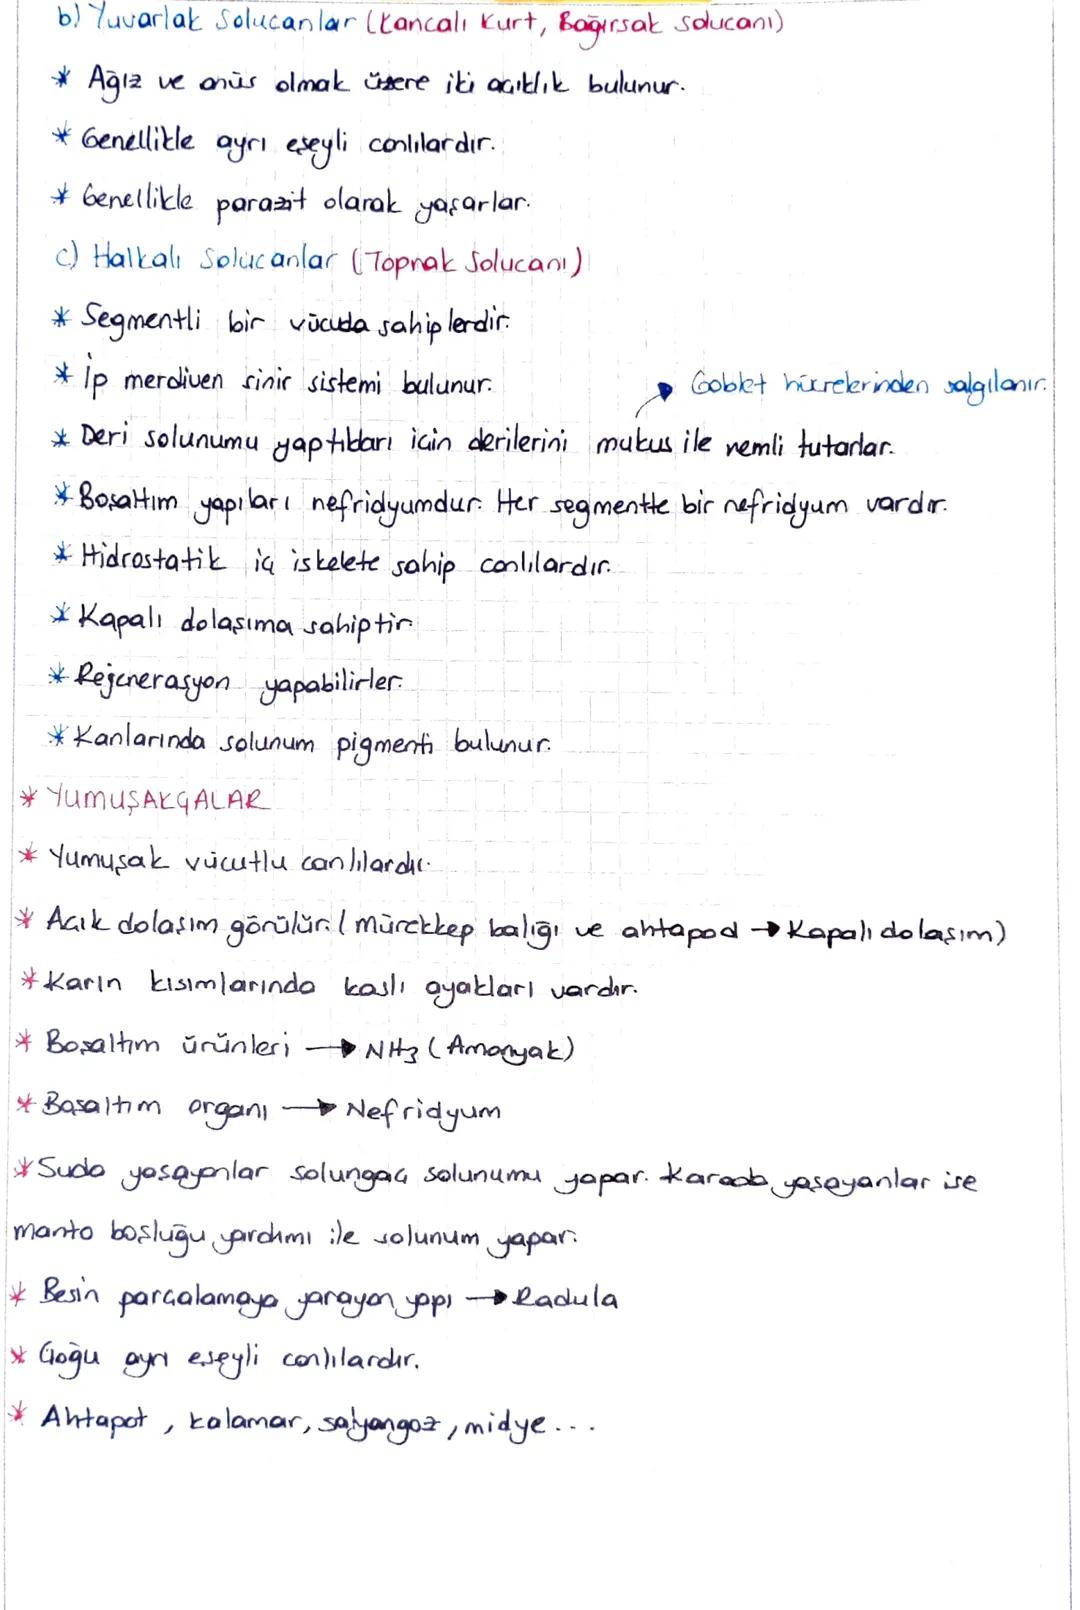 b) Yuvarlak Solucanlar (Kancalı Kurt, Bağırsak solucanı)
* Ağız ve anüs olmak üzere iki açıklık bulunur.
* Genellikle ayrı eşeyli canlılardır.
* Genellikle parazit olarak yaşarlar.
c) Halkalı Solucanlar (Toprak Solucanı)
* Segmentli bir vücuda sahiplerdir.
* İp merdiven sinir sistemi bulunur.
Goblet hücrelerinden salgılanır.
* Deri solunumu yaptıkları için derilerini mukus ile nemli tutarlar.
* Boşaltım yapıları nefridyumdur. Her segmentte bir nefridyum vardır.
* Hidrostatik iç iskelete sahip canlılardır.
* Kapalı dolaşıma sahiptir.
* Rejenerasyon yapabilirler.
* Kanlarında solunum pigmenti bulunur.
* YUMUŞAKÇALAR
* Yumuşak vücutlu canlılardır.
* Açık dolaşım görülür. (Mürekkep balığı ve ahtapod → Kapalı dolaşım)
* Karın kısımlarında kaslı ayakları vardır.
* Boşaltım ürünleri → NH3 (Amonyak)
* Boşaltım organı → Nefridyum
* Suda yaşayanlar solungaç solunumu yapar. Karada yaşayanlar ise
manto boşluğu yardımı ile solunum yapar.
* Besin parçalamaya yarayan yapı → Radula
* Çoğu ayrı eşeyli canlılardır.
* Ahtapot, kalamar, salyangoz, midye...